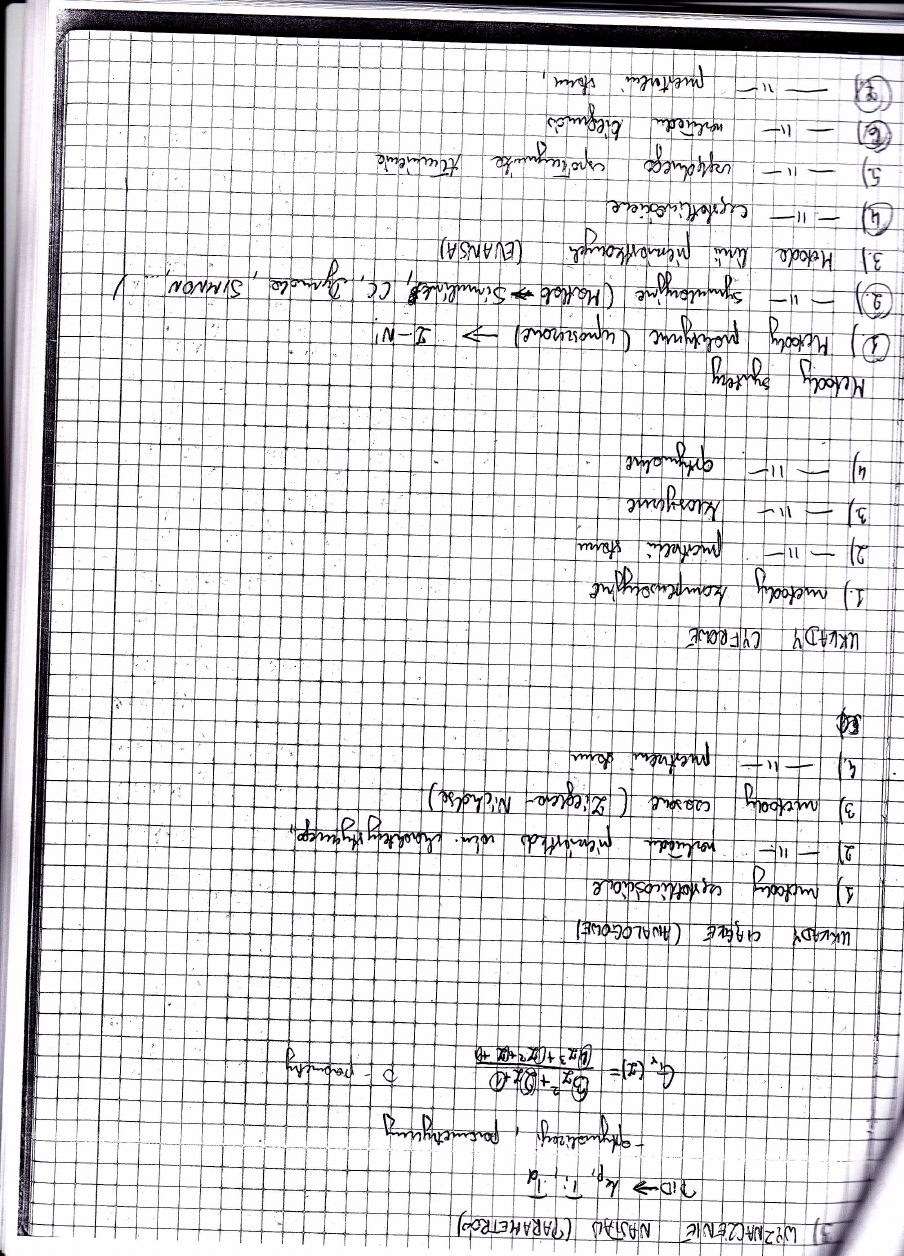 3) WYZNACZENIE NASTAW (PARAMETRÓW)
PiD → kp, Ti, Td
- optymalizacji, parametrycznej
Gr(z) = (3z² + 2z + 1) / (1z³ + 1z² + z + 1) O - parametry
UKŁADY CIĄGŁE (ANALOGOWE)
1) metody częstotliwościowe
2) — 11 — rozkładu pierwiastków równ. charakterystycznego,
3) metody czasowe (Zieglera-Nicholsa)
4) — 11 — przestrzeni stanu
UKŁADY CYFROWE
1.) metody kompensacyjne
2) — 11 — przestrzeni stanu
3.) — 11 — klasyczne
4) — 11 — optymalne
Metody syntezy
1) Metody analityczne (uproszczone) → Z-N!
2.) — 11 — symulacyjne (Matlab → Simulink, CC, Dymola, SIMNON, ...)
3.) Metoda linii pierwiastkowych (EVANSA)
4) — 11 — częstotliwościowe
5.) — 11 — względnego współczynnika tłumienia
6) — 11 — rozkładu biegunów
7) — 11 — przestrzeni stanu,